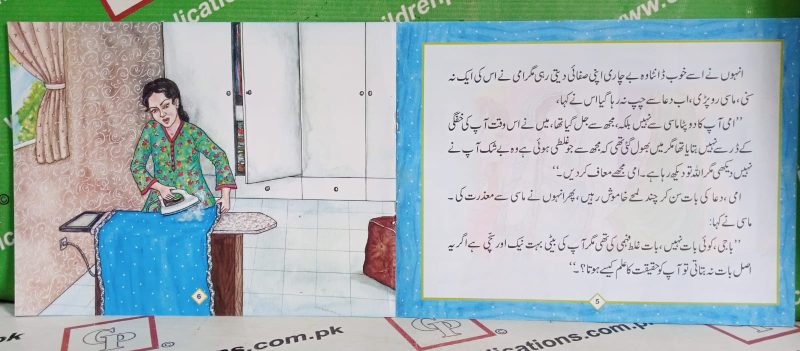 lications.co
ldrenp
انہوں نے اسے خوب ڈانٹا وہ بے چاری اپنی صفائی دیتی رہی مگر امی نے اس کی ایک نہ
سنی، ماسی رو پڑی، اب دعا سے چپ نہ رہا گیا اس نے کہا،
’’امی آپ کا دوپٹا ماسی سے نہیں بلکہ، مجھ سے جل گیا تھا، میں نے اس وقت آپ کی خفگی
کے ڈر سے نہیں بتایا تھا مگر میں بھول گئی تھی کہ مجھ سے جو غلطی ہوئی ہے وہ بے شک آپ نے
نہیں دیکھی مگر اللہ تو دیکھ رہا ہے۔ امی مجھے معاف کردیں۔‘‘
امی، دعا کی بات سن کر چند لمحے خاموش رہیں، پھر انہوں نے ماسی سے معذرت کی ۔
ماسی نے کہا:
’’باجی، کوئی بات نہیں، بات غلط فہمی کی تھی مگر آپ کی بیٹی بہت نیک اور سچی ہے اگر یہ
اصل بات نہ بتاتی تو آپ کو حقیقت کا علم کیسے ہوتا؟۔‘‘
5
6
s.com.pk
CP
childrenpublications.com.pk
CP